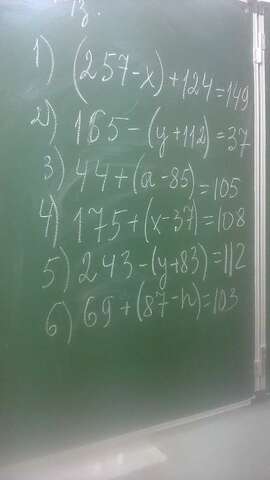 1) (257-x)+124=149
2) 165-(y+112)=37
3) 44+(a-85)=105
4) 175+(x-37)=108
5) 243-(y+83)=112
6) 69+(87-n)=103